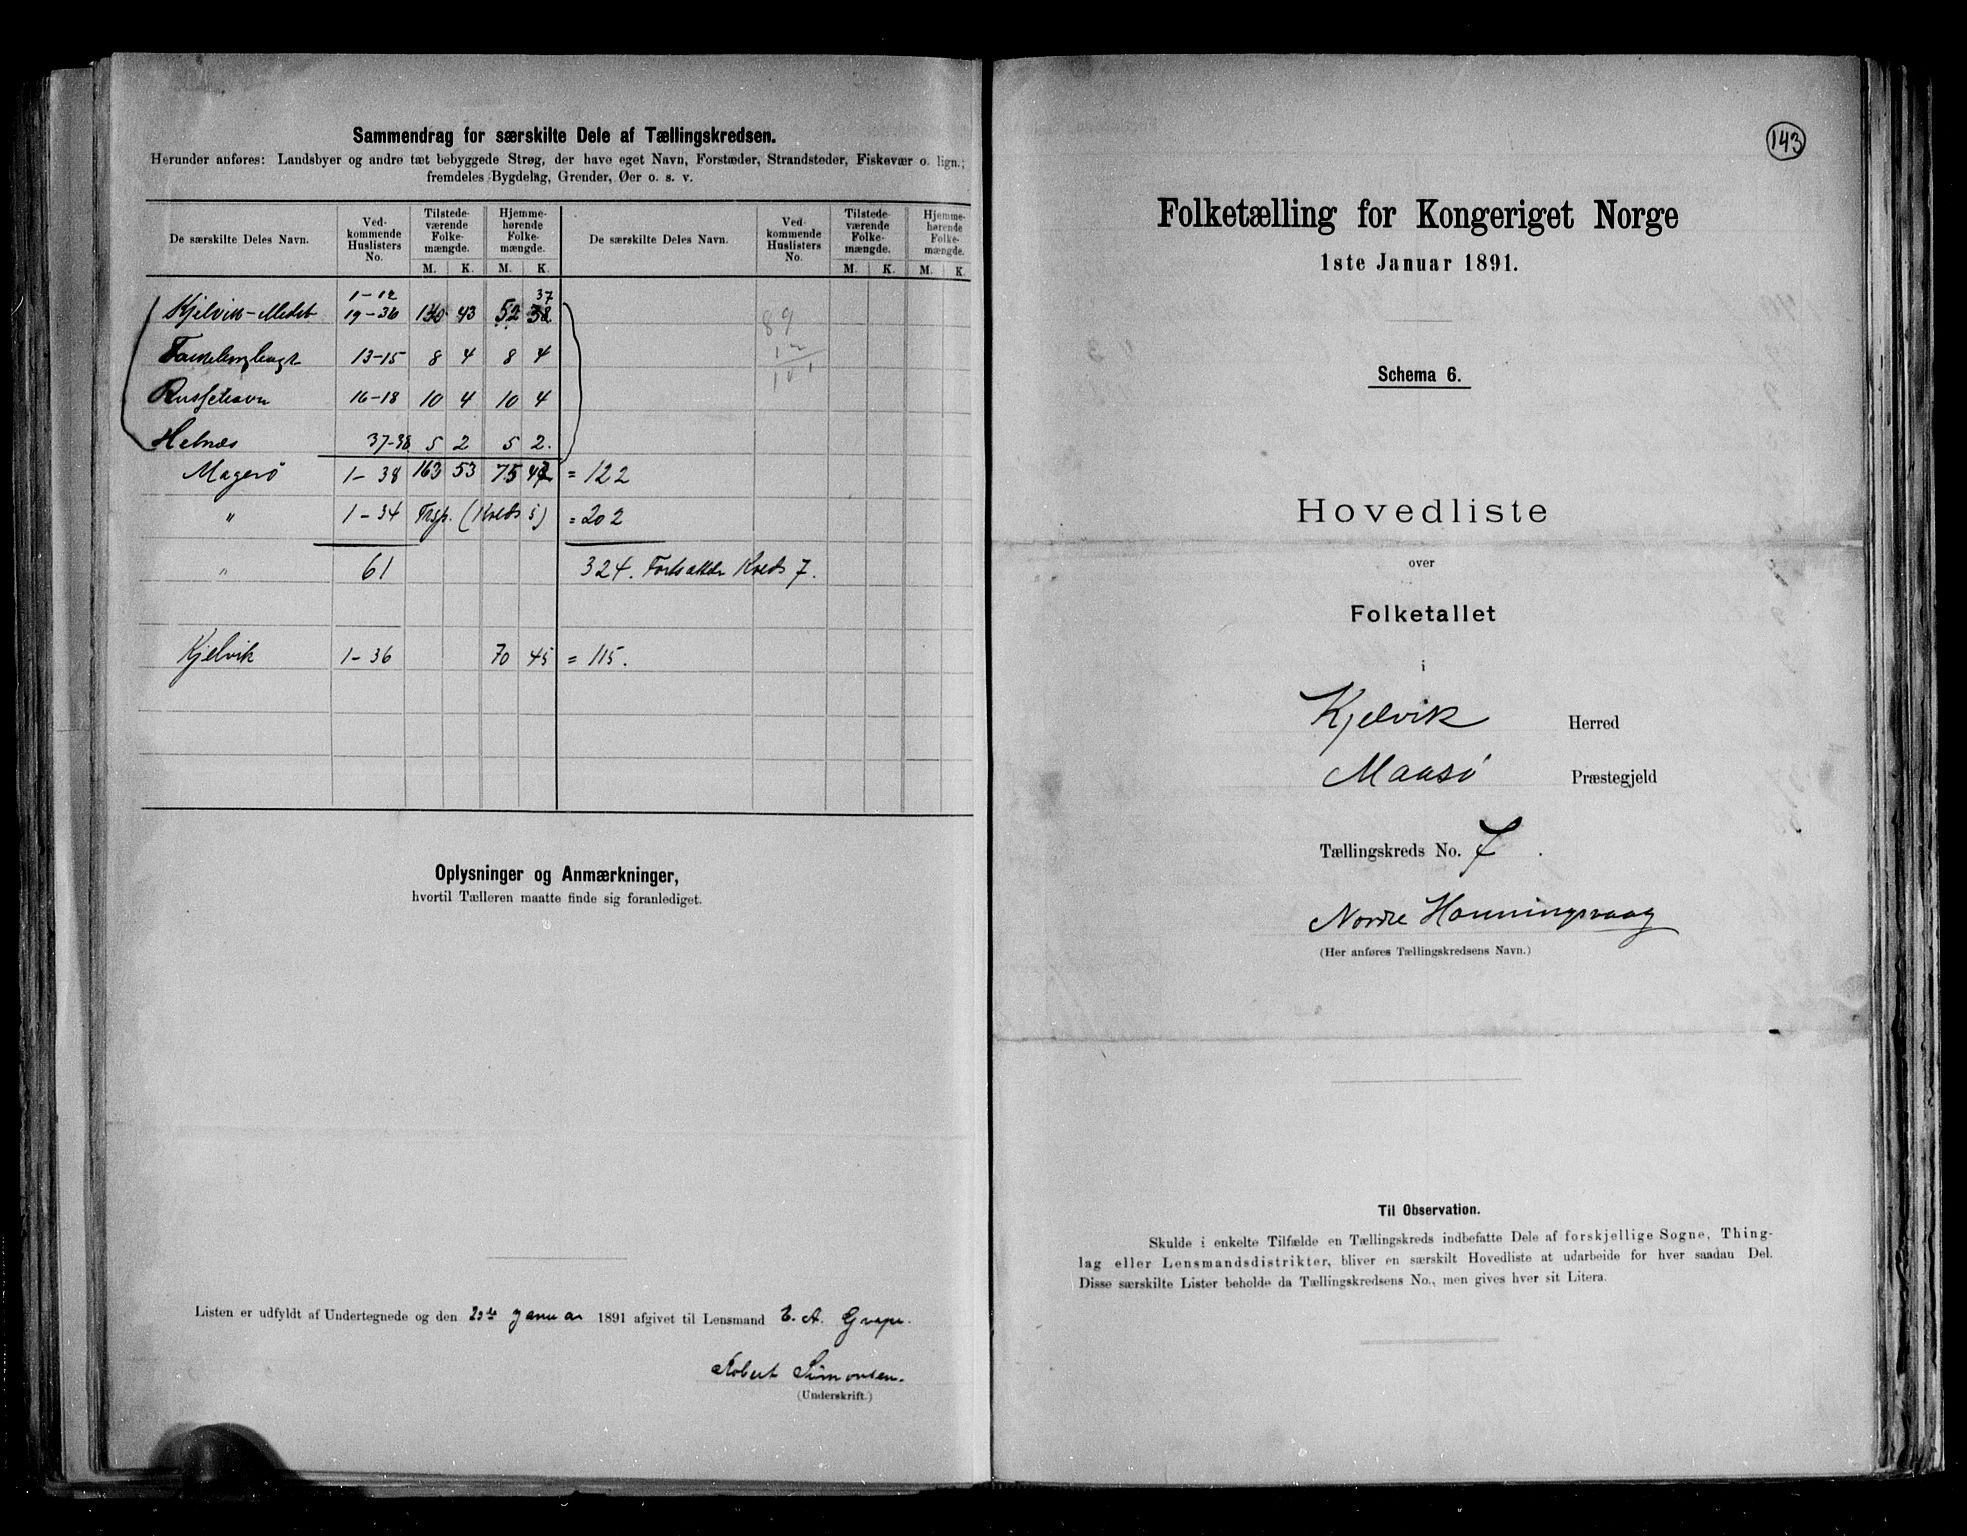 Sammendrag for særskilte Dele af Tællingskredsen.
Herunder anføres: Landsbyer og andre tæt bebyggede Strøg, der have eget Navn, Forstæder, Strandsteder, Fiskevær o. lign.;
fremdeles Bygdelag, Grender, Øer o. s. v.
De særskilte Deles Navn. Ved-kommende Huslisters No. Tilstede-værende Folke-mængde. Hjemme-hørende Folke-mængde. De særskilte Deles Navn. Ved-kommende Huslisters No. Tilstede-værende Folke-mængde. Hjemme-hørende Folke-mængde.
M. K. M. K. M. K. M. K.
1-12 37
Kjelvik 19-36 43 52 89
13-15 8 4 8 4 12
Russehavn 16-18 10 4 10 4 101
Helnæs 37-38 5 2 5 2.
Magerø 1-38 163 53 75 47 = 122
" 1-34 Trsp. (Kreds 5) = 202
" 61 324. Fortsættes Kreds 7.
Kjelvik 1-36 70 45 = 115.
Oplysninger og Anmærkninger,
hvortil Tælleren maatte finde sig foranlediget.
Listen er udfyldt af Undertegnede og den 23de Januar 1891 afgivet til Lensmand E. A. Grape.
Robert Simonsen.
(Underskrift.)
143
Folketælling for Kongeriget Norge
1ste Januar 1891.
Schema 6.
Hovedliste
over
Folketallet
i
Kjelvik Herred
Maasø Præstegjeld
Tællingskreds No. 7.
Nordre Honningsvaag
(Her anføres Tællingskredsens Navn.)
Til Observation.
Skulde i enkelte Tilfælde en Tællingskreds indbefatte Dele af forskjellige Sogne, Thing-
lag eller Lensmandsdistrikter, bliver en særskilt Hovedliste at udarbeide for hver saadan Del.
Disse særskilte Lister beholde da Tællingskredsens No., men gives hver sit Litera.